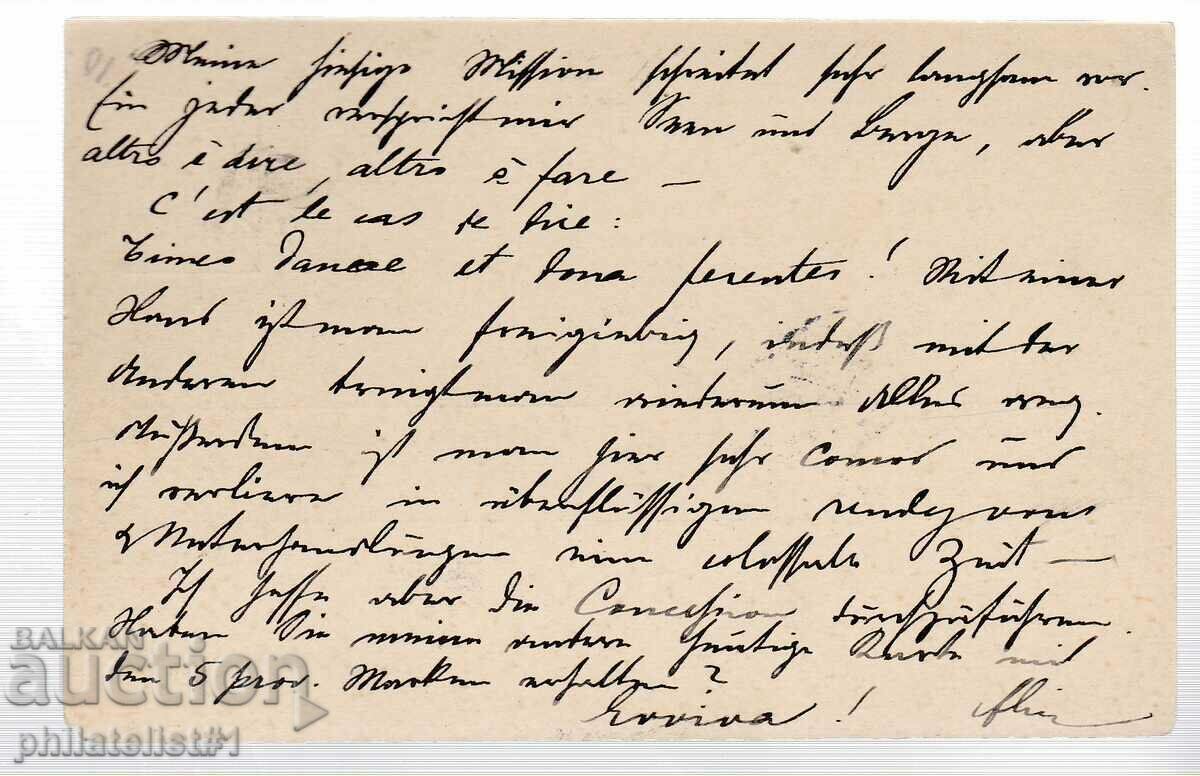 Meine hiesige Mission schreitet sehr langsam vor.
Ein jeder verspricht mir Seen und Berge, aber
altro è dire, altro è fare —
C'est le cas de dire:
Timeo Danae et dona ferentes! Mit einer
Hand ist man freigiebig, indeß mit der
Anderen man wiederum Alles weg.
Außerdem ist man hier sehr comod und
ich verliere in überflüssigen rendezvous
& Unterhandlungen eine colossale Zeit —
Ich hoffe aber die Concession durchzuführen.
Haben Sie meine andere heutige Karte mit
den 5 prov. Marken erhalten?
Evviva!
BALKAN
auction
philatelist#1